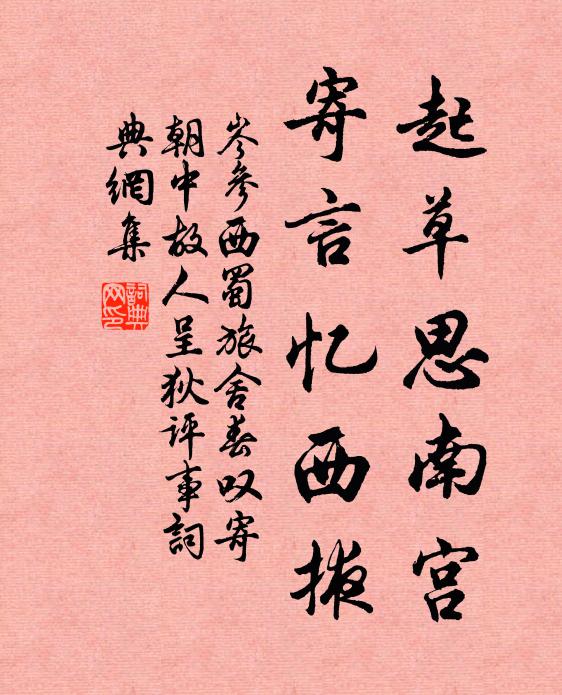 起草思南宫
寄言忆西掖
岑参西蜀旅舍春叹寄
朝中故人呈狄评事詞
典網集
詞典
网印